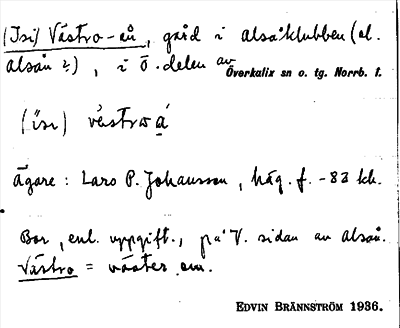 (Isi) Västro-ån, gård i alsåklubben (el.
alsån?), i ö. delen av Överkalix sn o. tg. Norrb. l.
(isi) vèstro å
Ägare: Lars P. Johansson, häg. f. -83 kk.
Bor, enl. uppgift., på V. sidan av alsån.
Västro = väster om.
EDVIN BRÄNNSTRÖM 1936.